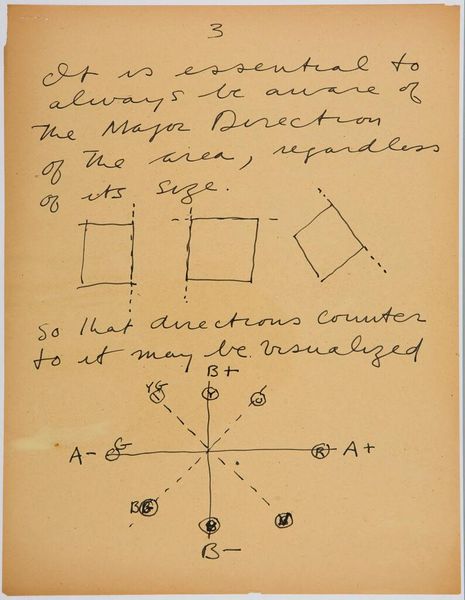 3
It is essential to
always be aware of
the Major Direction
of the area, regardless
of its size.
So that directions counter
to it may be visualized
B+
YG Y O
A- G R A+
BG B V
B-